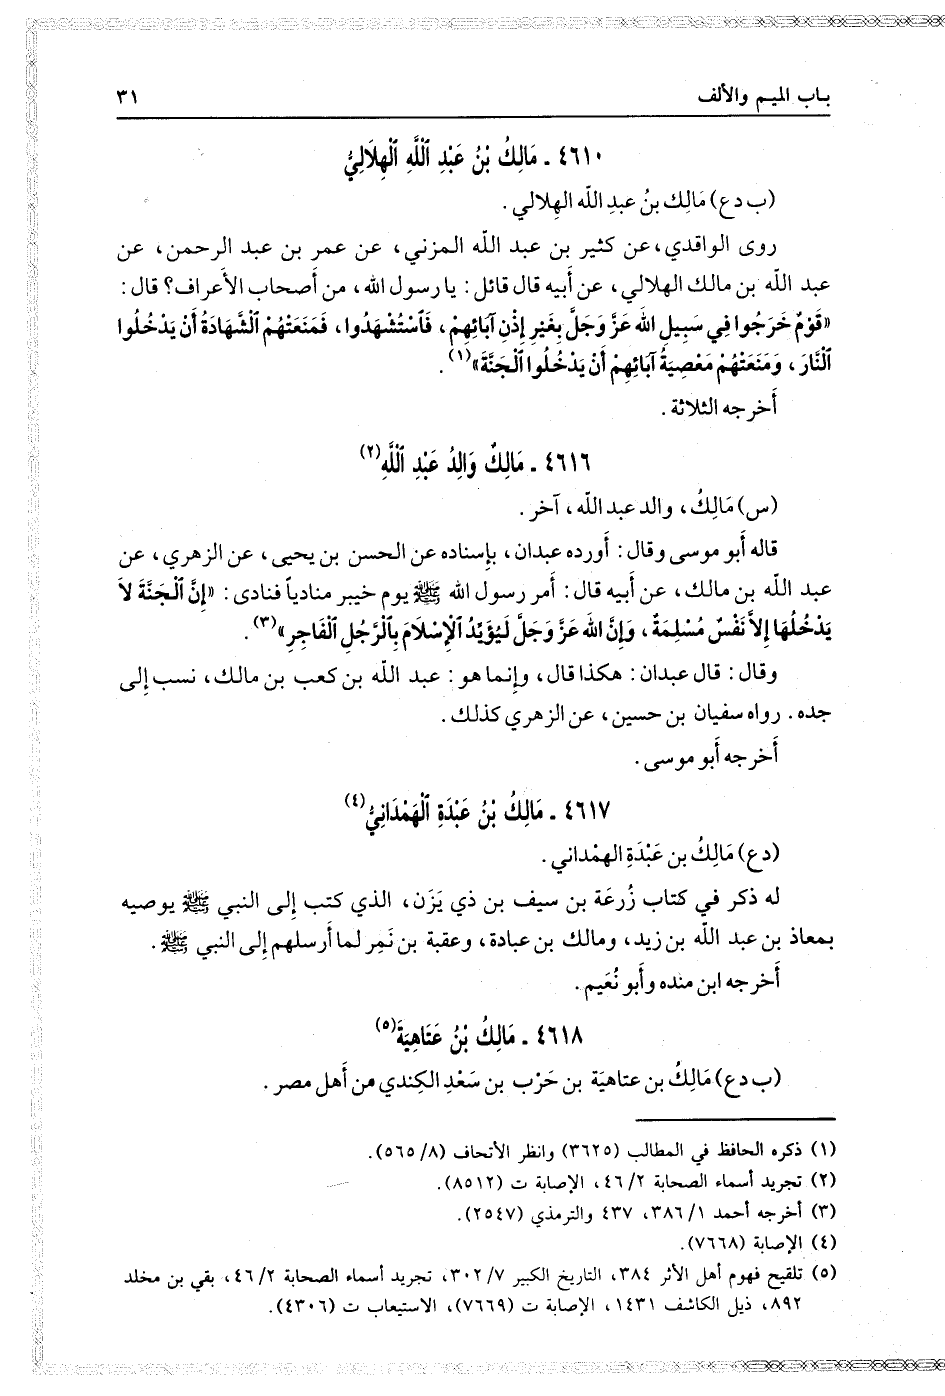 باب الميم والألف ٣١
٤٦١٠ ـ مَالِكُ بْنُ عَبْدِ ٱللَّهِ ٱلْهِلَالِيُّ
(ب د ع) مَالِك بنُ عبدِ اللّه الهِلالي.
روى الواقدي، عن كثير بن عبد اللّه المزني، عن عمر بن عبد الرحمن، عن
عبد اللّه بن مالك الهلالي، عن أَبيه قال قائل: يا رسول الله، من أَصحاب الأَعراف؟ قال:
«قَوْمٌ خَرَجُوا فِي سَبِيلِ الله عَزَّ وَجَلَّ بِغَيرِ إِذْنِ آبَائِهِمْ، فَٱسْتُشْهِدُوا، فَمَنَعَتْهُمْ ٱلْشَّهَادَةُ أَنْ يَدْخُلُوا
ٱلْنَّارَ، وَمَنَعَتْهُمْ مَعْصِيَةُ آبَائِهِمْ أَنْ يَدْخُلُوا ٱلْجَنَّةَ»(١).
أَخرجه الثلاثة.
٤٦١٦ ـ مَالِكٌ وَالِدُ عَبْدِ ٱللَّهِ(٢)
(س) مَالِكُ، والد عبد اللّه، آخر.
قاله أَبو موسى وقال: أَورده عبدان، بإِسناده عن الحسن بن يحيى، عن الزهري، عن
عبد اللّه بن مالك، عن أَبيه قال: أَمر رسول الله ﷺ يوم خيبر منادياً فنادى: «إِنَّ ٱلْجَنَّةَ لاَ
يَدْخُلُهَا إِلاَّ نَفْسٌ مُسْلِمَةٌ، وَإِنَّ الله عَزَّ وَجَلَّ لَيُؤَيِّدُ ٱلْإِسْلَامَ بِٱلْرَّجُلِ ٱلْفَاجِرِ»(٣).
وقال: قال عبدان: هكذا قال، وإِنما هو: عبد اللّه بن كعب بن مالك، نسب إِلى
جده. رواه سفيان بن حسين، عن الزهري كذلك.
أَخرجه أَبو موسى.
٤٦١٧ ـ مَالِكُ بْنُ عَبْدَةِ ٱلْهَمْدَانِيُّ(٤)
(د ع) مَالِكُ بن عَبْدَةِ الهمْداني.
له ذكر في كتاب زُرعَة بن سيف بن ذي يَزَن، الذي كتب إِلى النبي ﷺ يوصيه
بمعاذ بن عبد اللّه بن زيد، ومالك بن عبادة، وعقبة بن نَمِر لما أَرسلهم إِلى النبي ﷺ.
أَخرجه ابن منده وأَبو نُعَيم.
٤٦١٨ ـ مَالِكُ بْنُ عَتَاهِيَةَ(٥)
(ب د ع) مَالِكُ بن عتاهيَة بن حَرْب بن سَعْدِ الكِندي من أَهل مصر.
(١) ذكره الحافظ في المطالب (٣٦٢٥) وانظر الأتحاف (٨/ ٥٦٥).
(٢) تجريد أسماء الصحابة ٢/ ٤٦، الإصابة ت (٨٥١٢).
(٣) أخرجه أحمد ١/ ٣٨٦، ٤٣٧ والترمذي (٢٥٤٧).
(٤) الإصابة (٧٦٦٨).
(٥) تلقيح فهوم أهل الأثر ٣٨٤، التاريخ الكبير ٧/ ٣٠٢، تجريد أسماء الصحابة ٢/ ٤٦، بقي بن مخلد
٨٩٢، ذيل الكاشف ١٤٣١، الإصابة ت (٧٦٦٩)، الاستيعاب ت (٤٣٠٦).